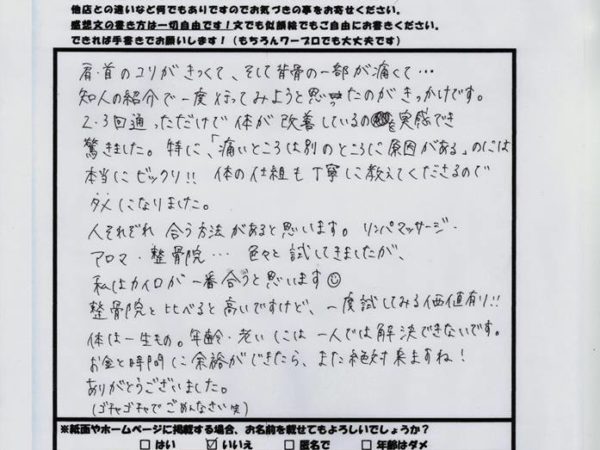 他店との違いなど何でもありますのでお気づきの事をお寄せください。
感想文の書き方は一切自由です！文でも似顔絵でもご自由にお書きください。
できれば手書きでお願いします！（もちろんワープロでも大丈夫です）
肩・首のコリがきつくて、そして背骨の一部が痛くて…
知人の紹介で一度行ってみようと思ったのがきっかけです。
2・3回通っただけで体が改善しているのを実感でき
驚きました。特に、「痛いところは別のところに原因がある」のには
本当にビックリ!! 体の仕組も丁寧に教えてくださるので
タメになりました。
人それぞれ合う方法があると思います。リンパマッサージ・
アロマ・整骨院… 色々と試してきましたが、
私はカイロが一番合うと思います☺
整骨院と比べると高いですけど、一度試してみる価値有り!!
体は一生もの。年齢・老いには一人では解決できないです。
お金と時間に余裕ができたら、また絶対来ますね！
ありがとうございました。
(ゴチャゴチャでごめんなさい笑)
※紙面やホームページに掲載する場合、お名前を載せてもよろしいでしょうか？
□はい ☑いいえ □匿名で □年齢はダメ